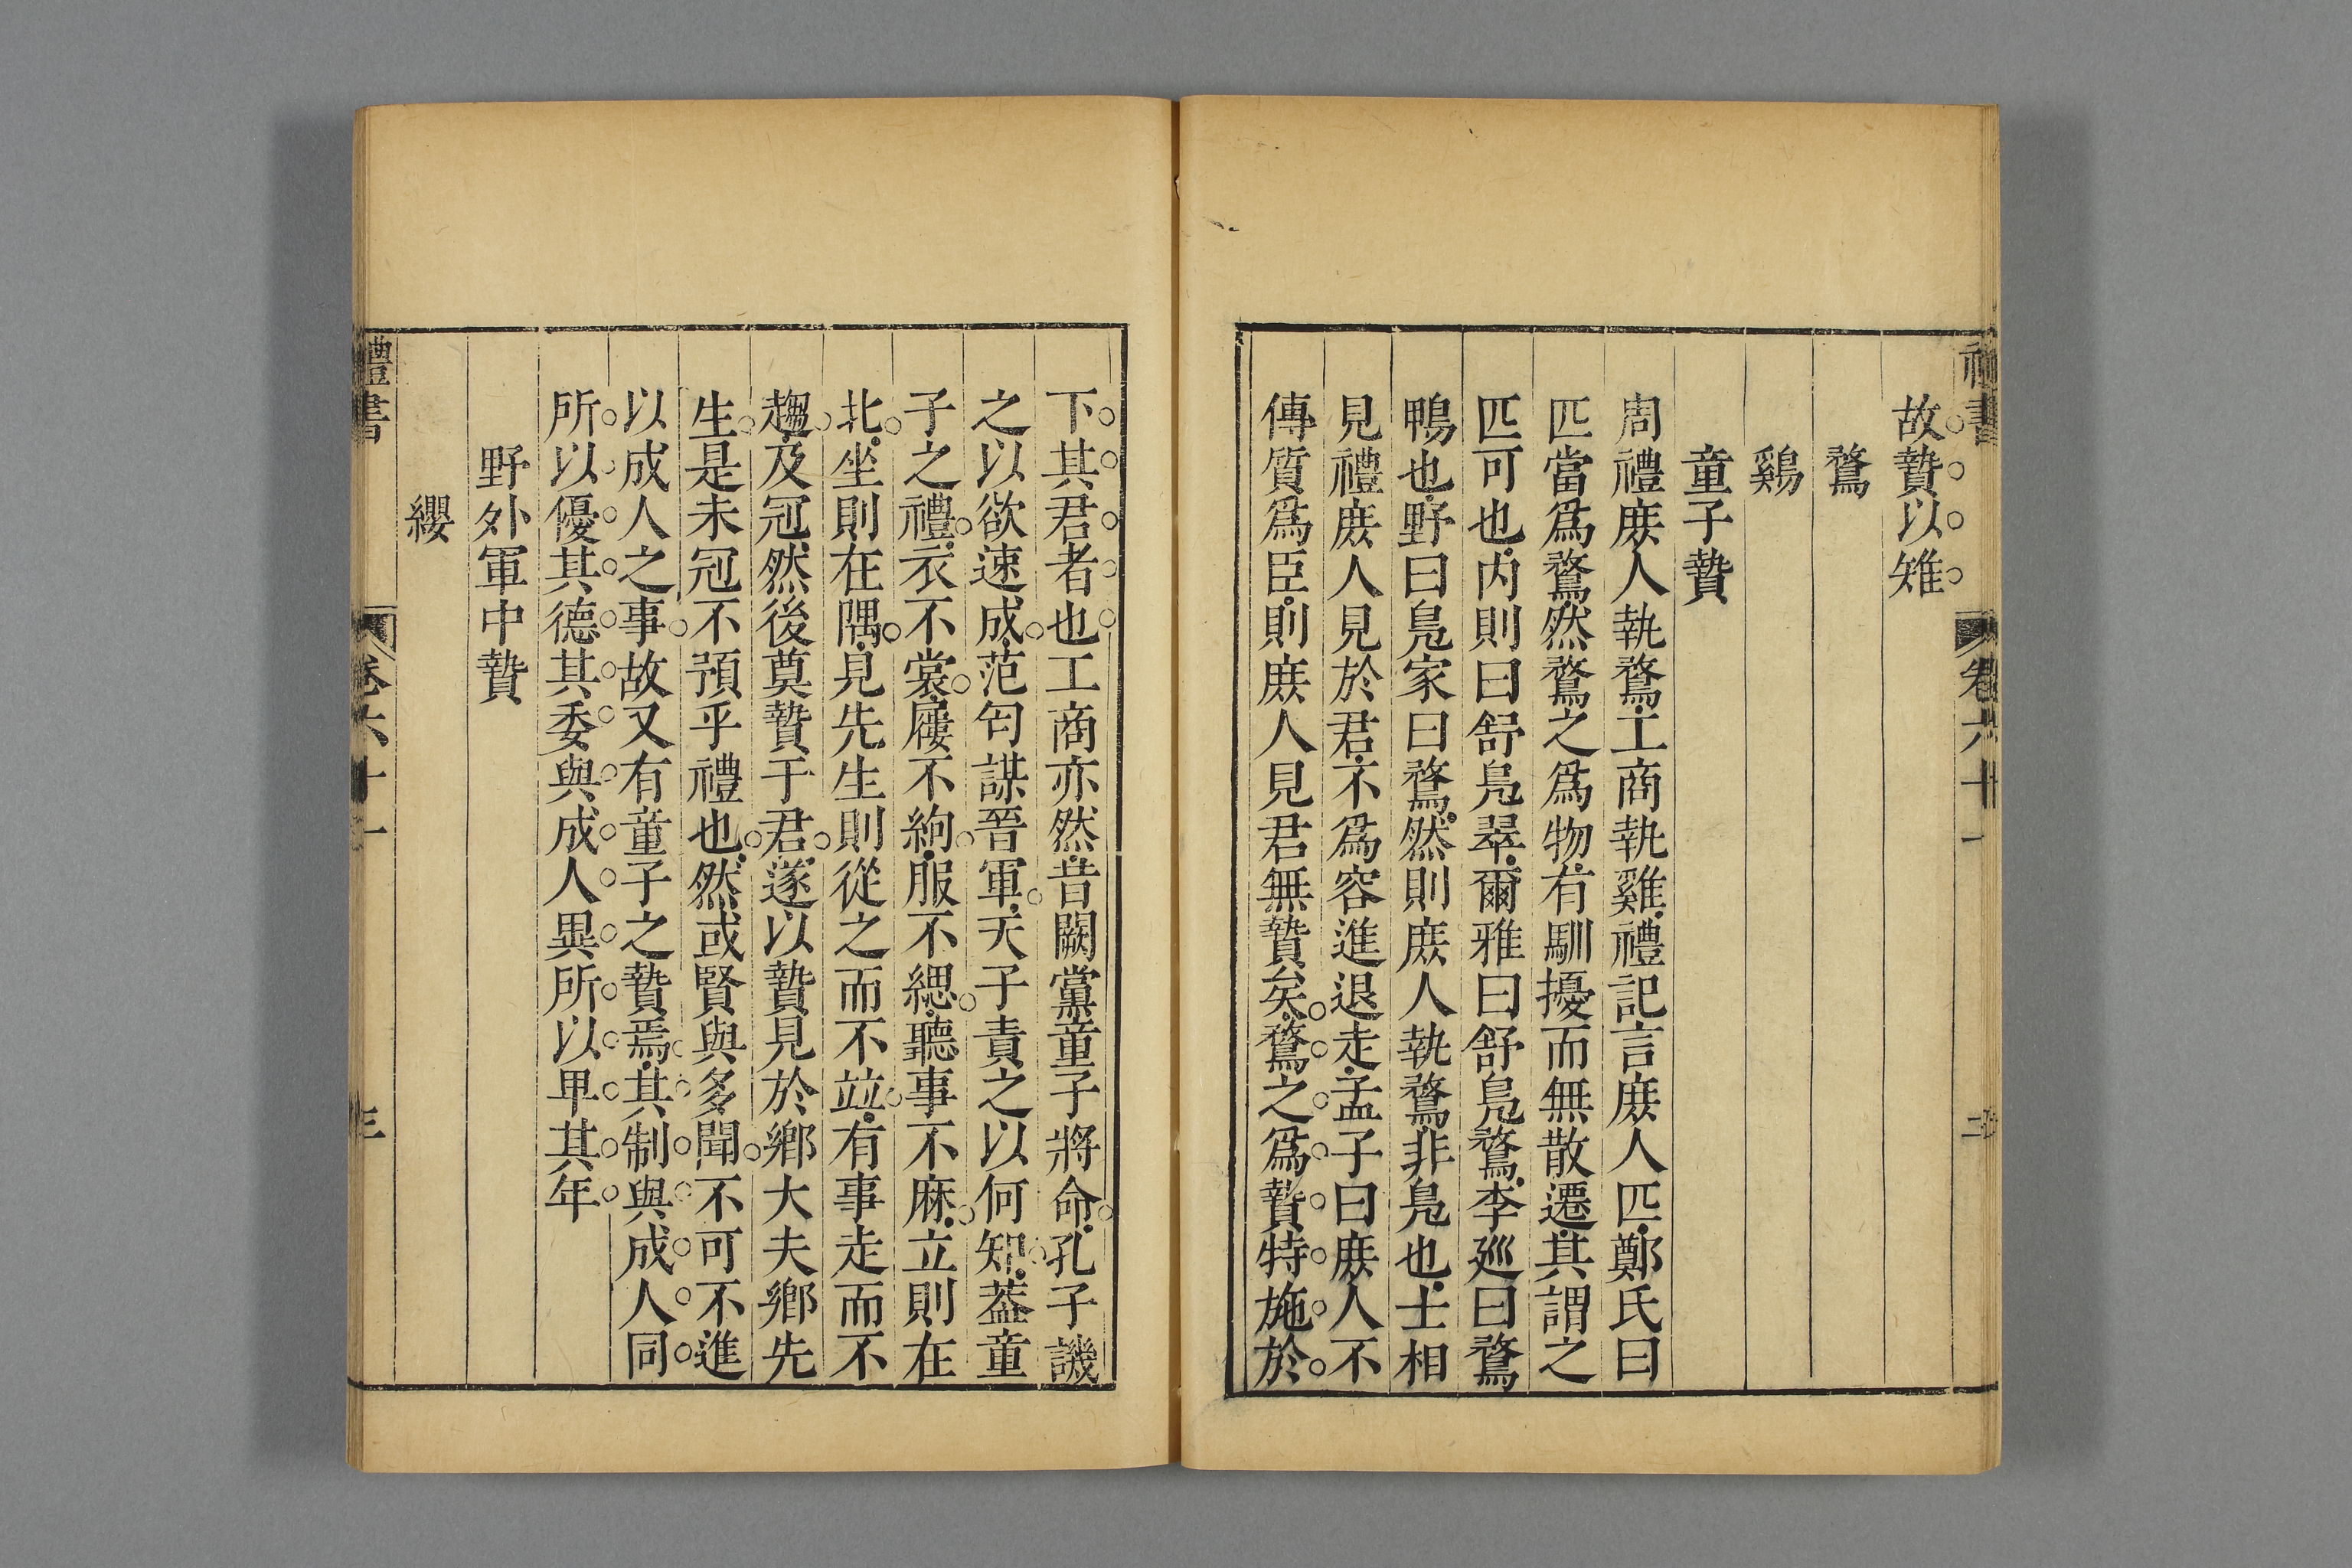 禮書 卷六十一 二
故贄以雉
鶩
鷄
童子贄
周禮庶人執鶩工商執雞禮記言庶人匹鄭氏曰
匹當爲鶩然鶩之爲物有馴擾而無散遷其謂之
匹可也内則曰舒鳧翠爾雅曰舒鳧鶩李廵曰鶩
鴨也野曰鳧家曰鶩然則庶人執鶩非鳧也士相
見禮庶人見於君不爲容進退走孟子曰庶人不
傳質爲臣則庶人見君無贄矣鶩之爲贄特施於
下其君者也工商亦然昔闕黨童子將命孔子譏
之以欲速成范匄謀晉軍天子責之以何知葢童
子之禮衣不裳屨不絇服不緦聽事不麻立則在
北坐則在隅見先生則從之而不竝有事走而不
趨及冠然後奠贄于君遂以贄見於鄉大夫鄉先
生是未冠不預乎禮也然或賢與多聞不可不進
以成人之事故又有童子之贄焉其制與成人同
所以優其德其委與成人異所以卑其年
野外軍中贄
纓
禮書 卷六十一 三